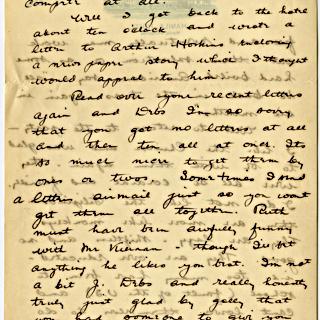 compete at all.
Well I got back to the hotel
about ten o'clock and wrote a
letter to Arthur Hopkins enclosing
a news paper story which I thought
would appeal to him.
Read over your recent letters
again and Debs I'm so sorry
that you got no letters at all
and then ten all at once. Its
so much more to get them by
ones or twos. Sometimes I send
a letter airmail just so you wont
get them all together. Ruth
must have been awfully funny
with Mr Kiernan - though I'll bet
anything he likes you best. I'm not
a bit J. Debs and really honestly
truly just glad by golly that
you had someone to give you